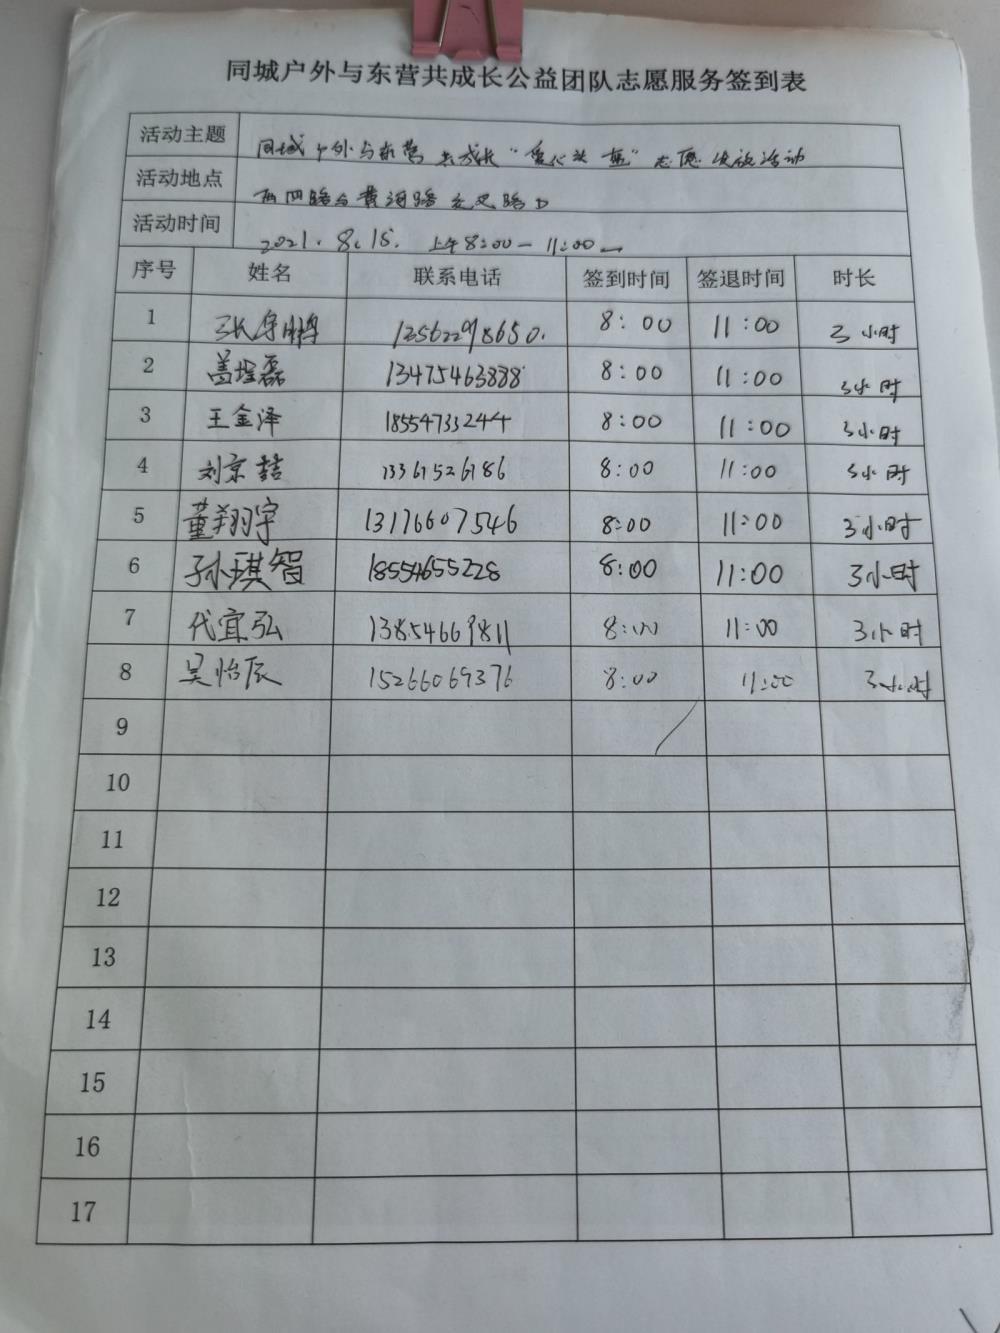 同城户外与东营共成长公益团队志愿服务签到表
活动主题 同城户外与东营共成长“爱心头盔”志愿发放活动
活动地点 西四路与黄河路交叉路口
活动时间 2021.8.15. 上午8:00—11:00
序号 姓名 联系电话 签到时间 签退时间 时长
1 张 12562298650. 8:00 11:00 3小时
2 盖垤磊 13475463888 8:00 11:00 3小时
3 王金泽 18554733244 8:00 11:00 3小时
4 刘京喆 13361526786 8:00 11:00 3小时
5 董翔宇 13176607546 8:00 11:00 3小时
6 孙琪智 18554655228 8:00 11:00 3小时
7 代宜弘 13854669811 8:00 11:00 3小时
8 吴怡辰 15266069376 8:00 11:00 3小时
9
10
11
12
13
14
15
16
17